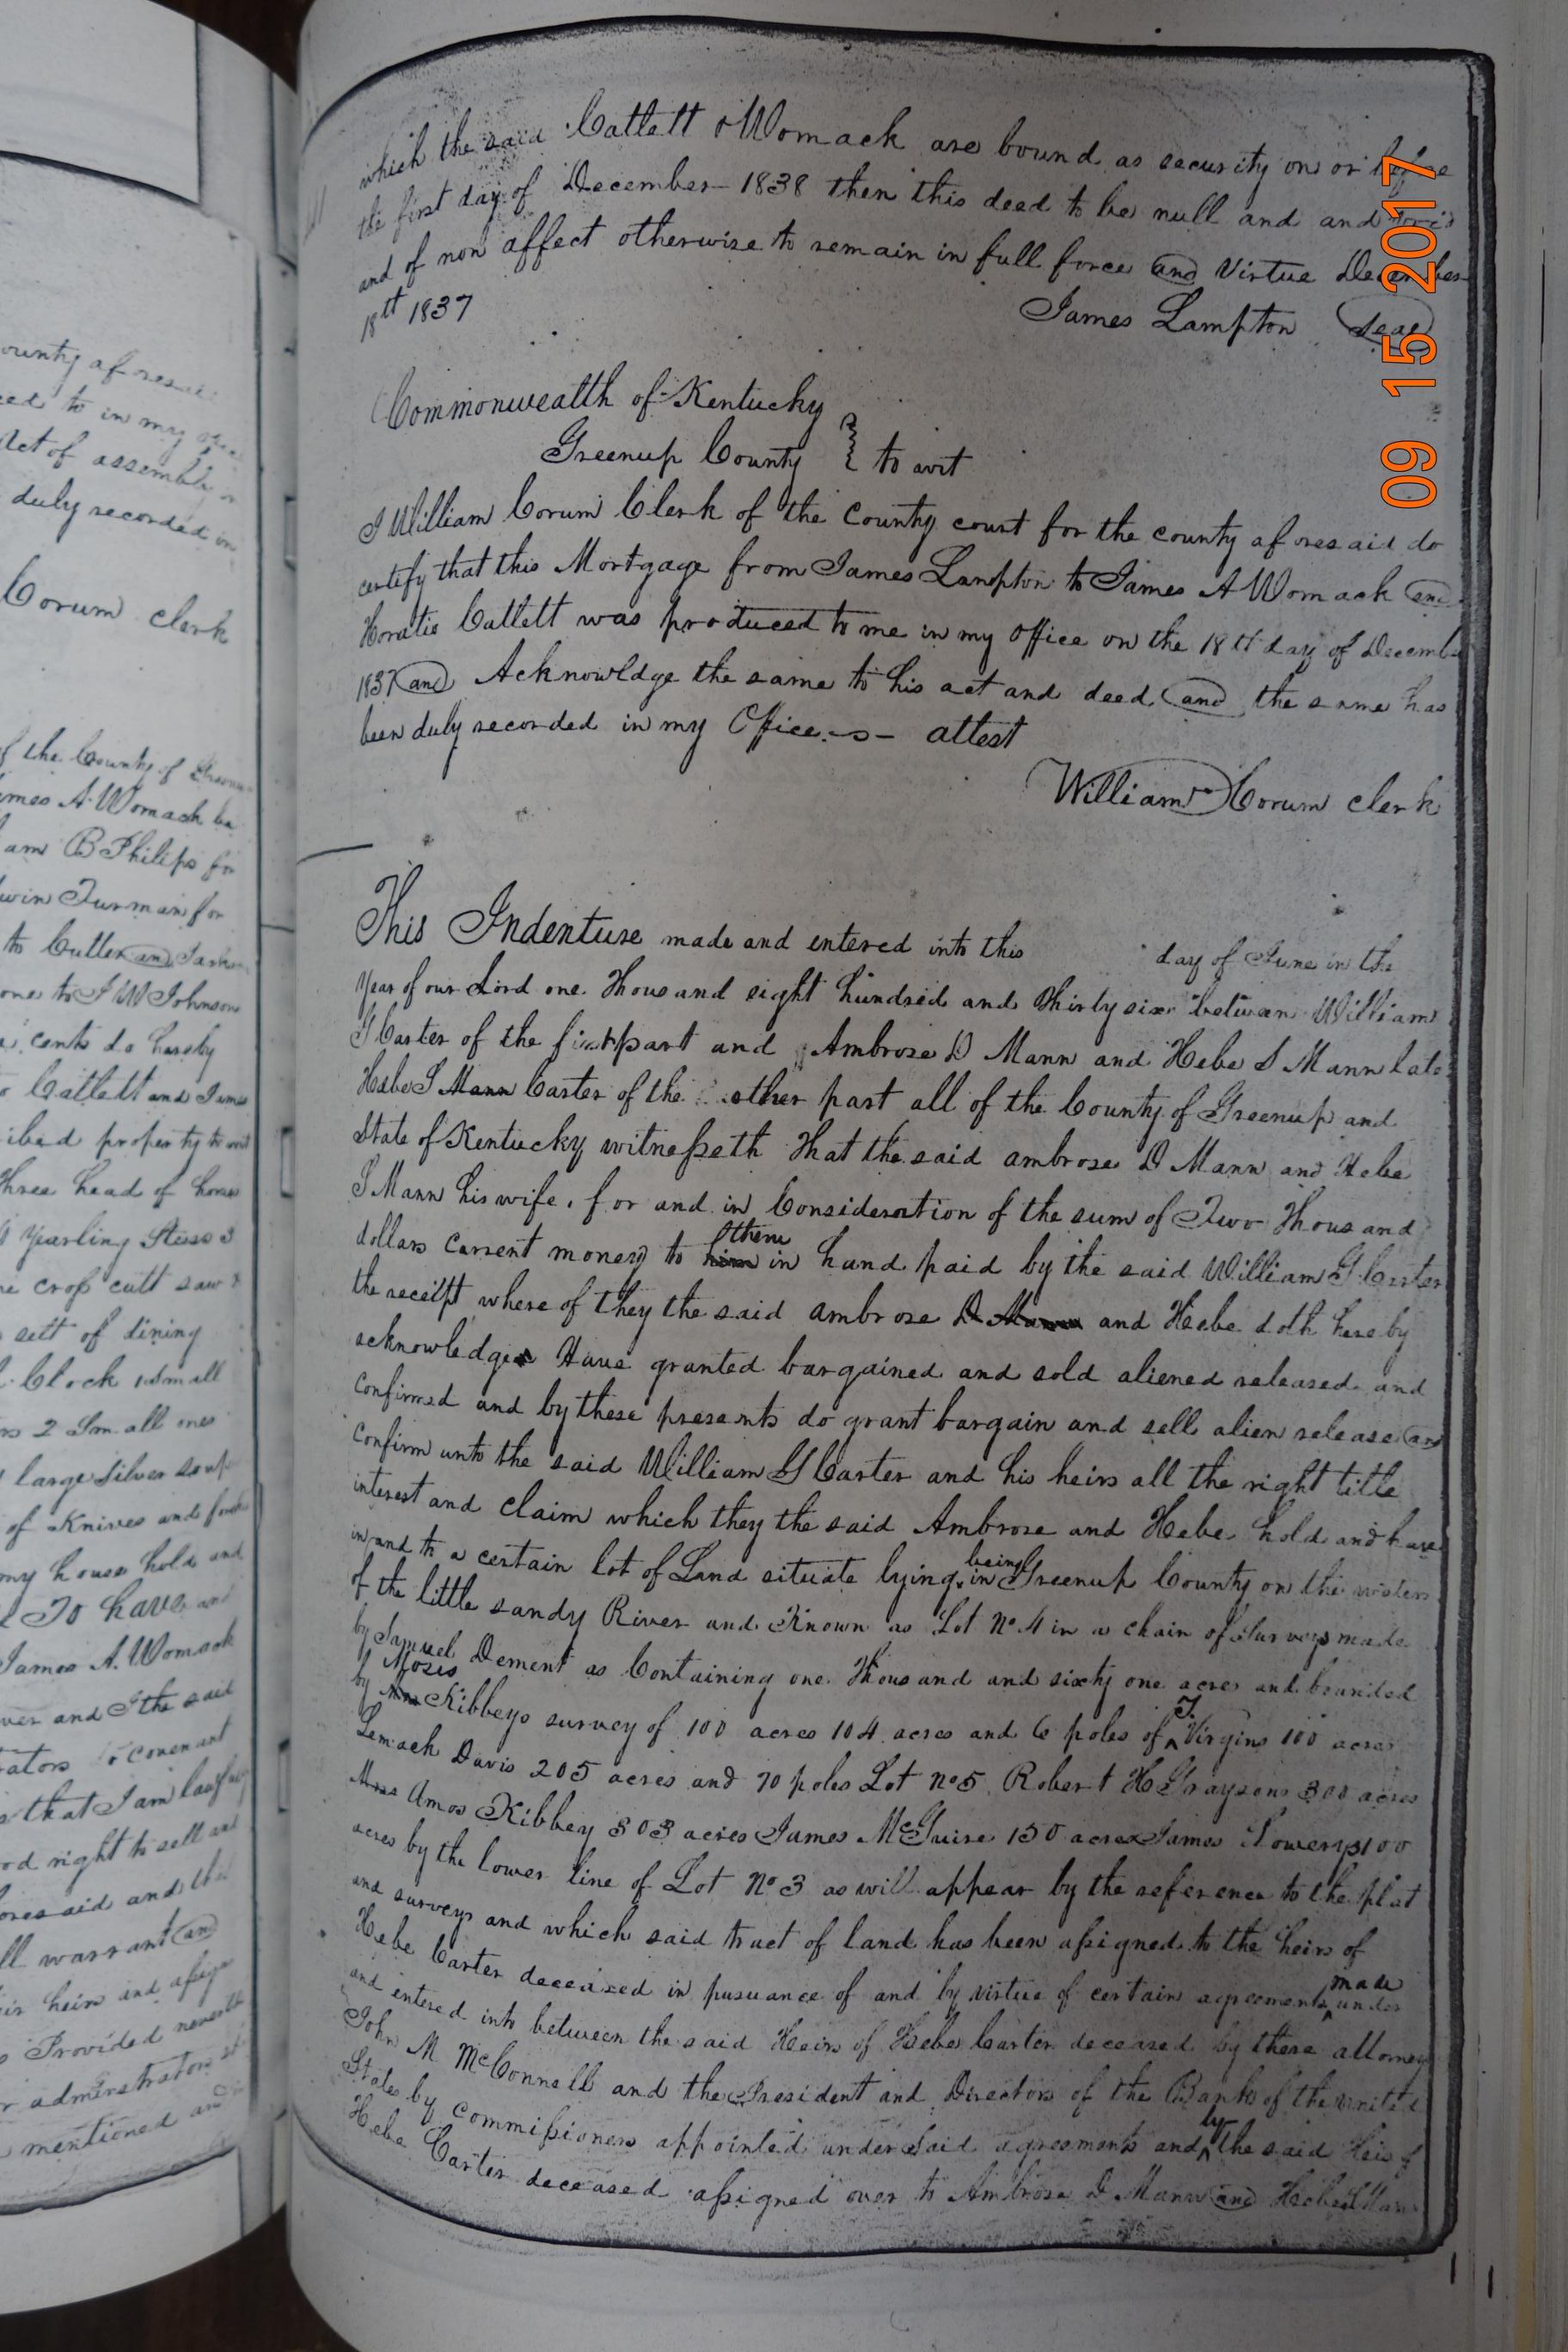 ounty afores
ed to in my
Act of assembly
duly recorded in
Corum clerk
of the County of
ames A Womack
am B Philips for
win Turman for
to Culler and
one to J W Johnson
cents do hereby
Catlett and James
ibed property to wit
three head of horse
yearling Steers 3
crop cutt saw
sett of dining
Clock 1 small
2 Small ones
large Silver soup
of Knives and forks
my house hold and
To have and
James A. Womack
ver and I the said
ators covenant
that I am lawfully
od right to sell and
oresaid and the
ll warrant and
ir heirs and assigns
Provided
r adminstrators
mentioned and
which the said Catlett & Womack are bound as security on or before
the first day of December 1838 then this deed to be null and and void
and of non affect otherwise to remain in full force and virtue December
18th 1837
James Lampton Seal
Commonwealth of Kentucky
Greenup County } to wit
I William Corum Clerk of the County court for the county aforesaid do
certify that this Mortgage from James Lampton to James A Womack and
Horatio Catlett was produced to me in my office on the 18th day of Decembe
1837 and Acknowldge the same to his act and deed and the same has
been duly recorded in my Office — attest
William Corum clerk
This Indenture made and entered into this day of June in the
Year of our Lord one Thousand eight hundred and thirty six between William
G Carter of the first part and Ambrose D Mann and Hebe S Mann late
Hebe S Mann Carter of the other part all of the County of Greenup and
State of Kentucky witnesseth that the said ambrose D Mann and Hebe
S Mann his wife, for and in Consideration of the sum of Two Thousand
dollars current money to him them in hand paid by the said William G Carter
the receipt where of they the said ambrose D Mann and Hebe doth hereby
acknowledge Have granted bargained and sold aliened released and
confirmed and by these presents do grant bargain and sell alien release and
confirm unto the said William G Carter and his heirs all the right title
interest and claim which they the said Ambrose and Hebe hold and have
in and to a certain lot of Land situate lying being in Greenup County on the waters
of the little sandy River and Known as Lot No 4 in a chain of Surveys made
by Samuel Dement as Containing one Thousand and sixty one acres and bounded
by Moses Kibbeys survey of 100 acres 104 acres and 6 poles of T Virgins 100 acres
Lemach Davis 205 acres and 70 poles Lot No 5 Robert H Graysons 300 acres
Amos Kibbey 303 acres James McGuire 150 acres James Lowerys 100
acres by the lower line of Lot No 3 as will appear by the reference to the plat
and surveys and which said tract of land has been assigned to the heirs of
Hebe Carter deceased in pusuance of and by virtue of certain agreements made under
and entered into between the said Heirs of Hebe Carter deceased by there attorney
John M McConnell and the President and Directors of the Bank of the united
States by commissioners appointed under said agreements and by the said Heis of
Hebe Carter deceased assigned over to Ambrose D Mann and Hebe S Mann
09 15 2017